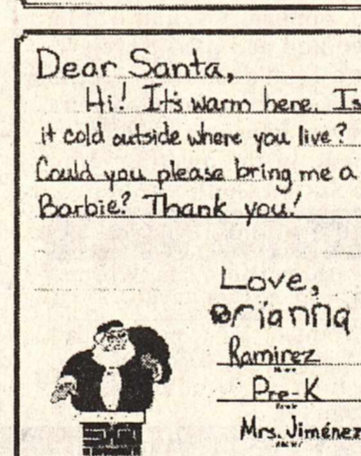 Dear Santa,
Hi! It's warm here. Is
it cold outside where you live?
Could you please bring me a
Barbie? Thank you!
Love,
Brianna
Ramirez
Pre-K
Mrs. Jiménez